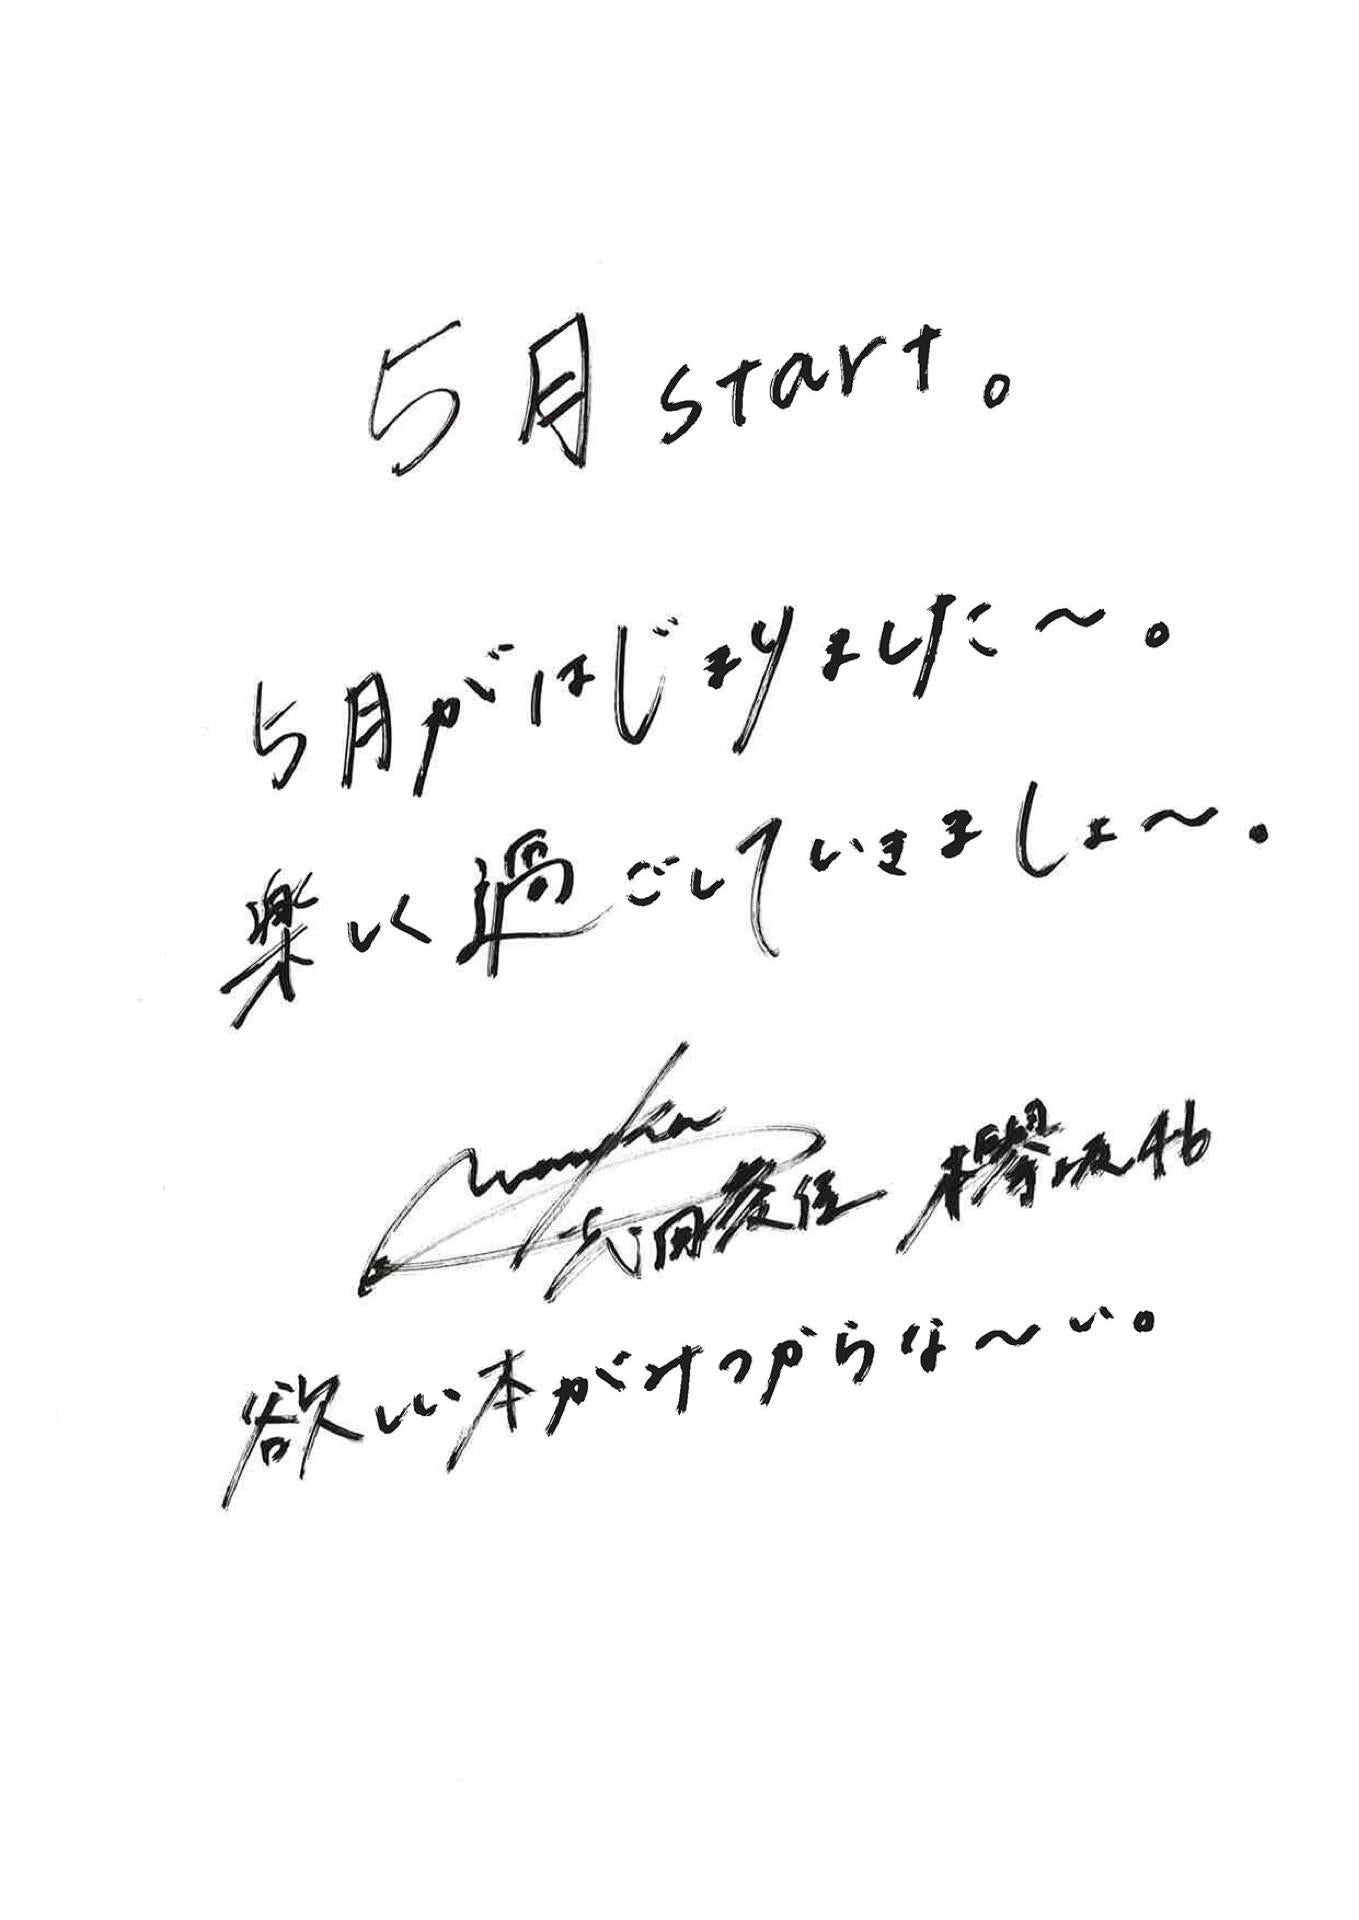 5月start。
5月がはじまりました〜。
楽しく過ごしていきましょ〜。
志田愛佳 欅坂46
欲しい本がみつからな〜い。